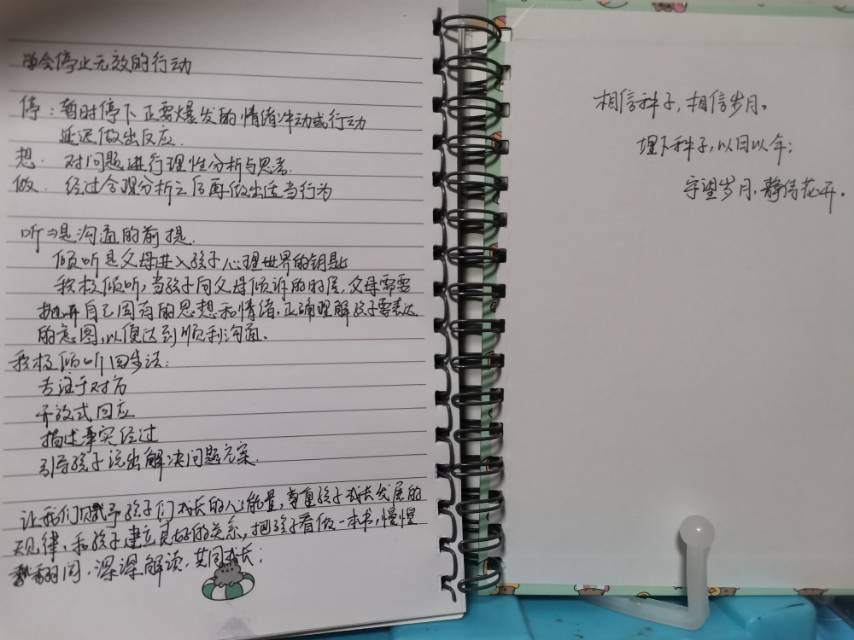 学会停止无效的行动
停：暂时停下正要爆发的情绪冲动或行动
延迟做出反应.
想. 对问题进行理性分析与思考.
做. 经过合理分析之后再做出适当行为
听⇒是沟通的前提.
倾听是父母进入孩子心理世界的钥匙
积极倾听,当孩子向父母倾诉的时候,父母需要
抛开自己固有的思想和情绪,正确理解孩子要表达
的意图,以便达到顺利沟通。
积极倾听四步法:
专注于对方
开放式回应
描述事实经过
引导孩子说出解决问题方案.
让我们赋予孩子们成长的心能量,尊重孩子成长发展的
规律,和孩子建立良好的关系,把孩子看做一本书,慢慢
翻阅,深深解读,共同成长;
相信种子,相信岁月。
埋下种子,以日以年;
守望岁月,静待花开。